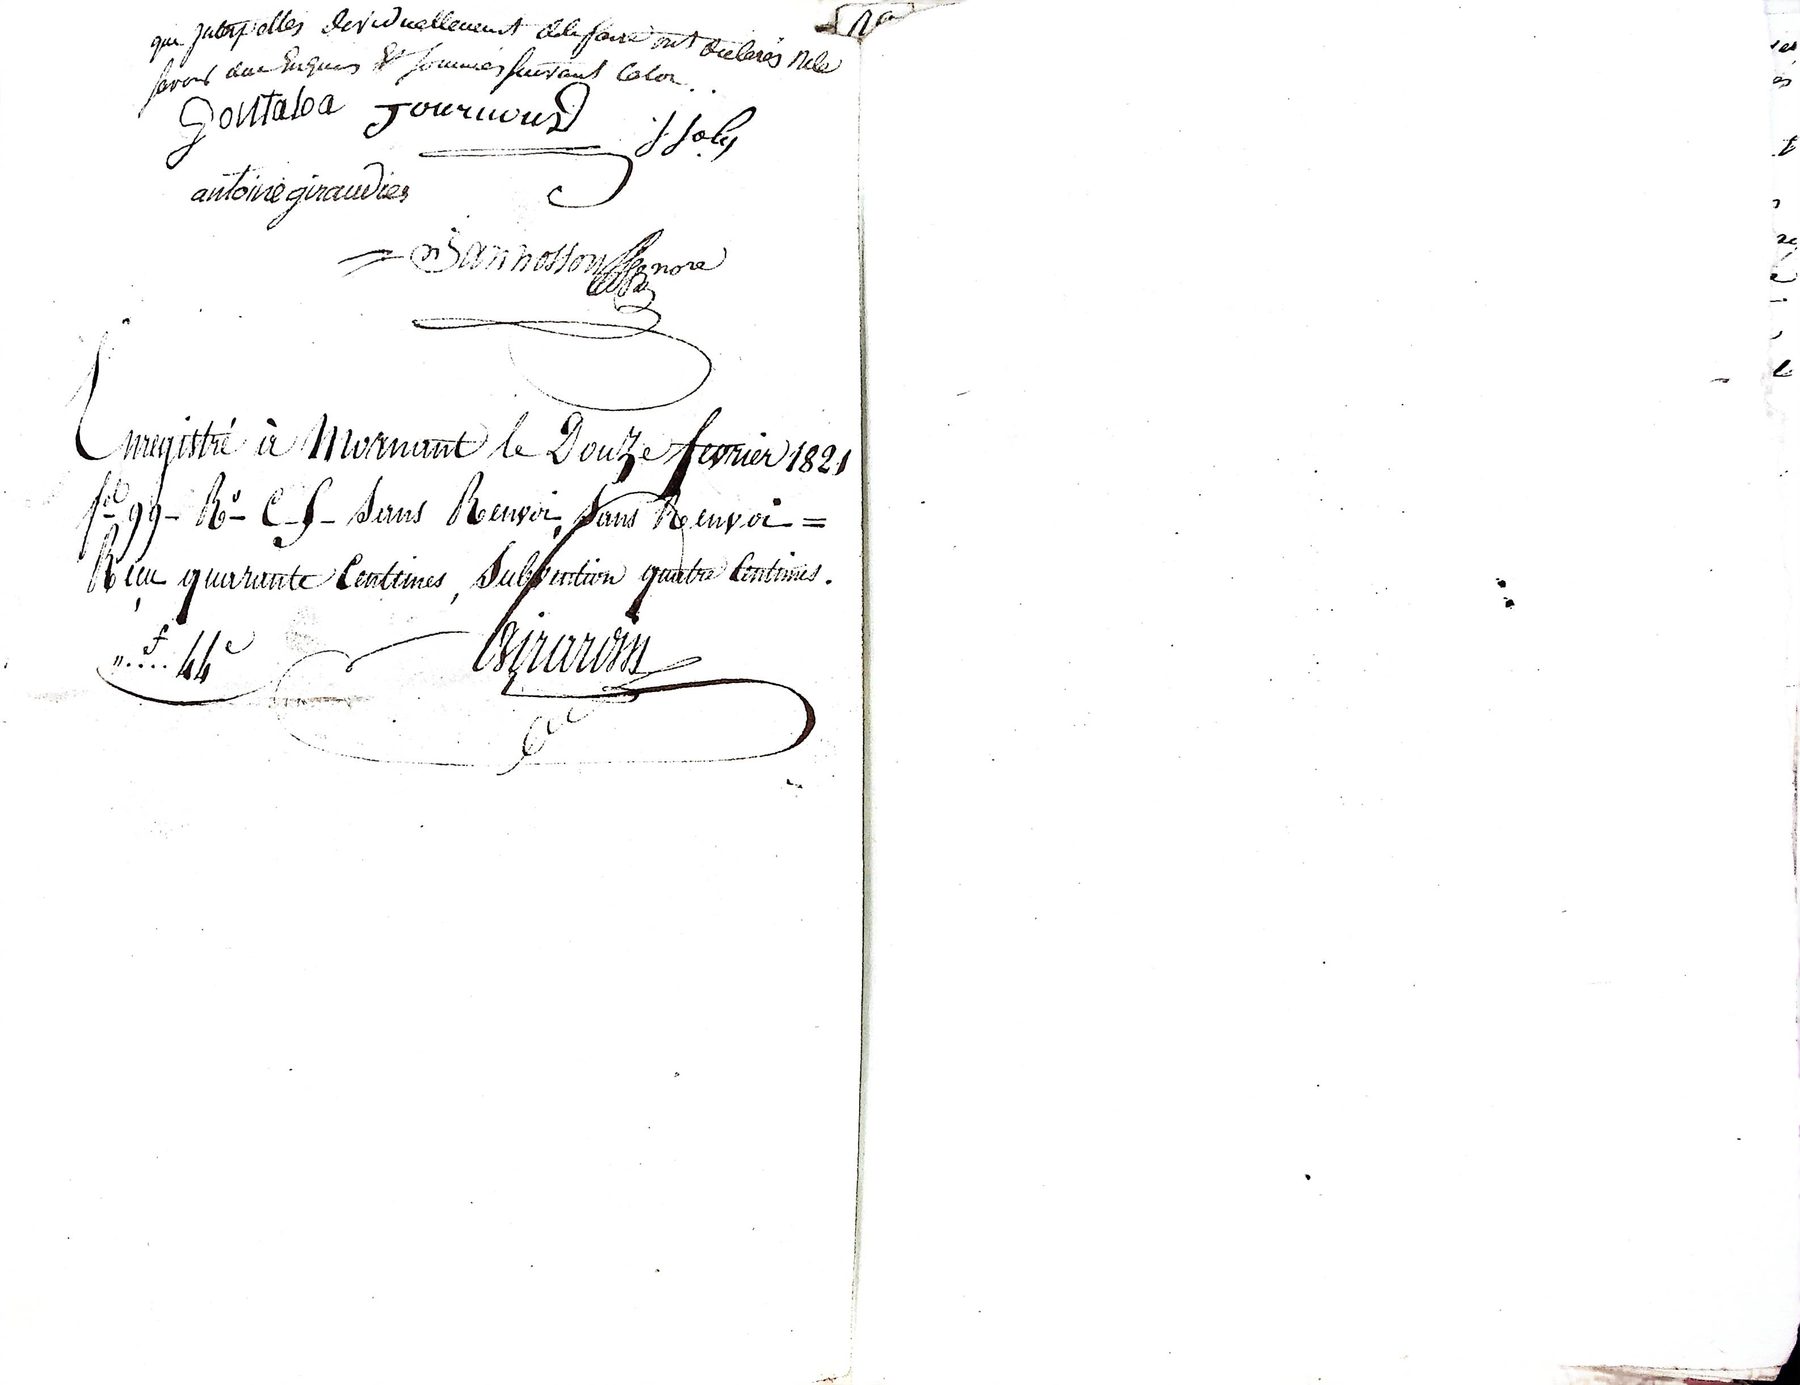 que interpellés dividuellement dele faire ont declarés ne le
savoir due Enquis Et sommés suivant la loi
Goutaba Journoud J Joly
antoine giraudier
Bannosson nore
Enregistré à Mornant le Douze fevrier 1821
fo 99 - Ro - C - 5 - Sans Renvoi, Sans Renvoi =
Reçu quarante Centimes, Subvention quatre Centimes.
" f .... 44 c
Girardin